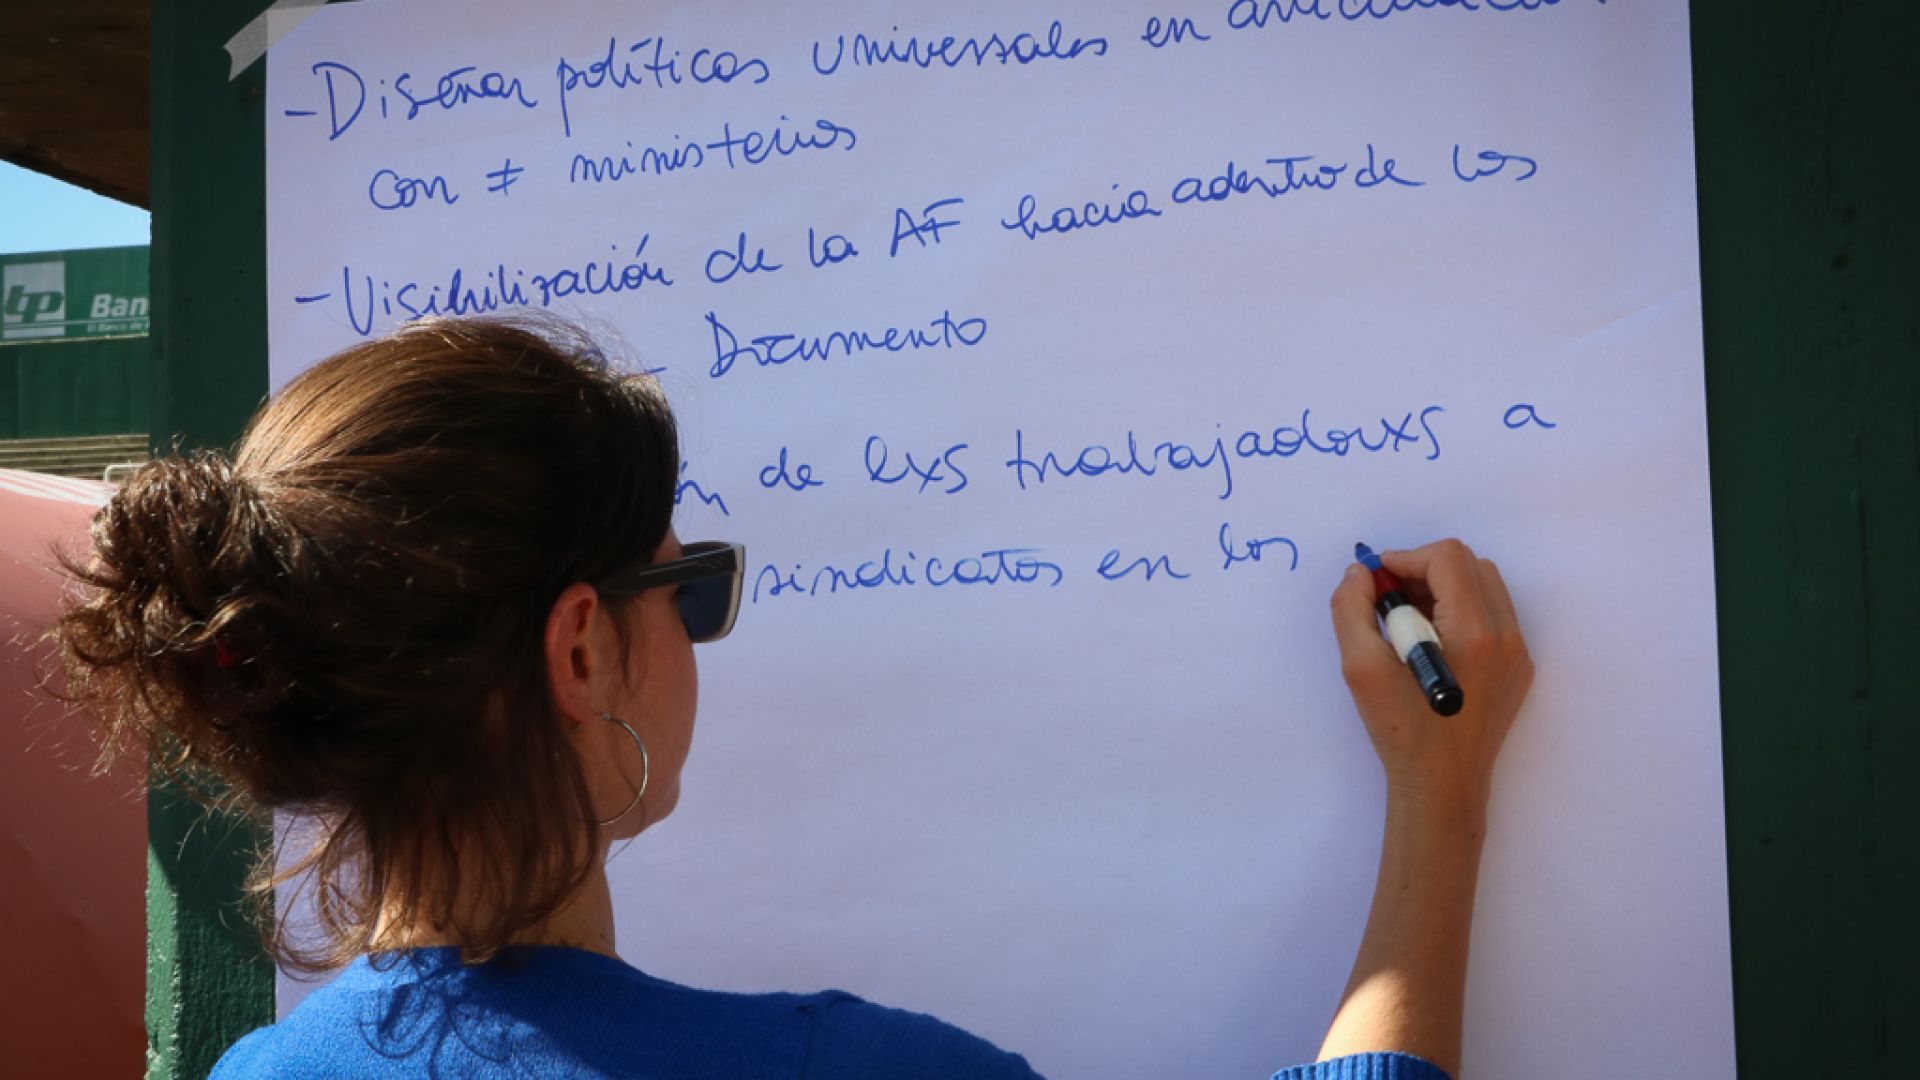 - Diseñar políticas universales en articulación
con ≠ ministerios
- Visibilización de la AF hacia adentro de los
- Documento
ón de lxs trabajadorxs a
sindicatos en los
bp Ban
El Banco de